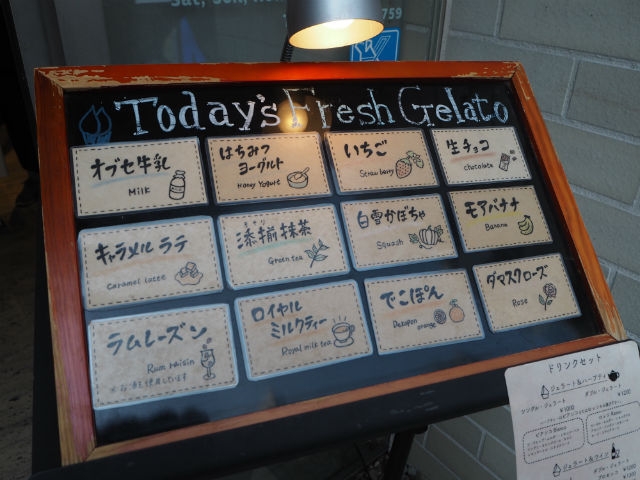 Sat, Sun,
759
Today's Fresh Gelato
オブセ牛乳
Milk
はちみつ
ヨーグルト
Honey Yogurt
いちご
Strawberry
生チョコ
chocolate
キャラメルラテ
caramel latte
添揃抹茶
Green tea
白雪かぼちゃ
Squash
モアバナナ
Banana
ラムレーズン
Rum raisin
ロイヤル
ミルクティー
Royal milk tea
でこぽん
Dekopon
orange
ダマスクローズ
Rose
ドリンクセット
ジェラート&ハーブティ
シングル・ジェラート
ダブル・ジェラート
ジェラート&ワイン
ダブル・ジェラート